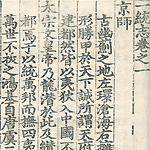 一統志卷之一
京師
古幽薊之地左環滄海右擁
形勝甲於天下誠所謂天府
建都然皆以夷狄入中國不
太宗文皇帝乃龍潛於此及
都焉于以統萬邦而撫四夷
萬世不拔之鴻基自唐虞三